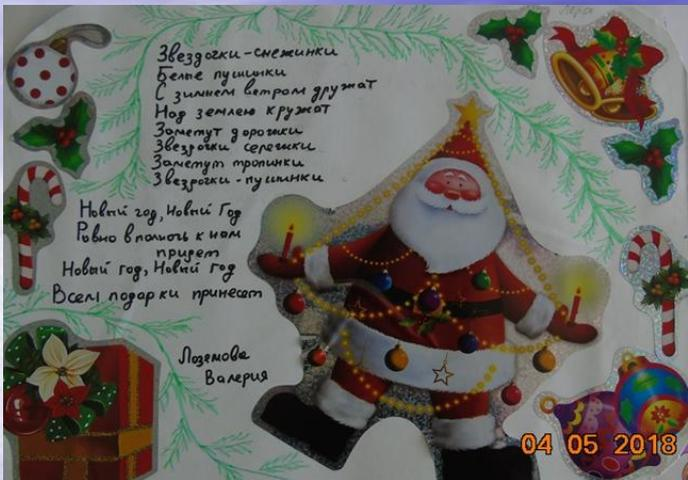 Лера
Звездочки-снежинки
Белые пушинки
С зимнем ветром дружат
Над землею кружат
Заметут дорожки
Звездочки сережки
Заметут тропинки
Звездочки-пушинки
Новый год, Новый Год
Ровно в полночь к нам
придет
Новый год, Новый год
Всем подарки принесет
Валерия
04 05 2018